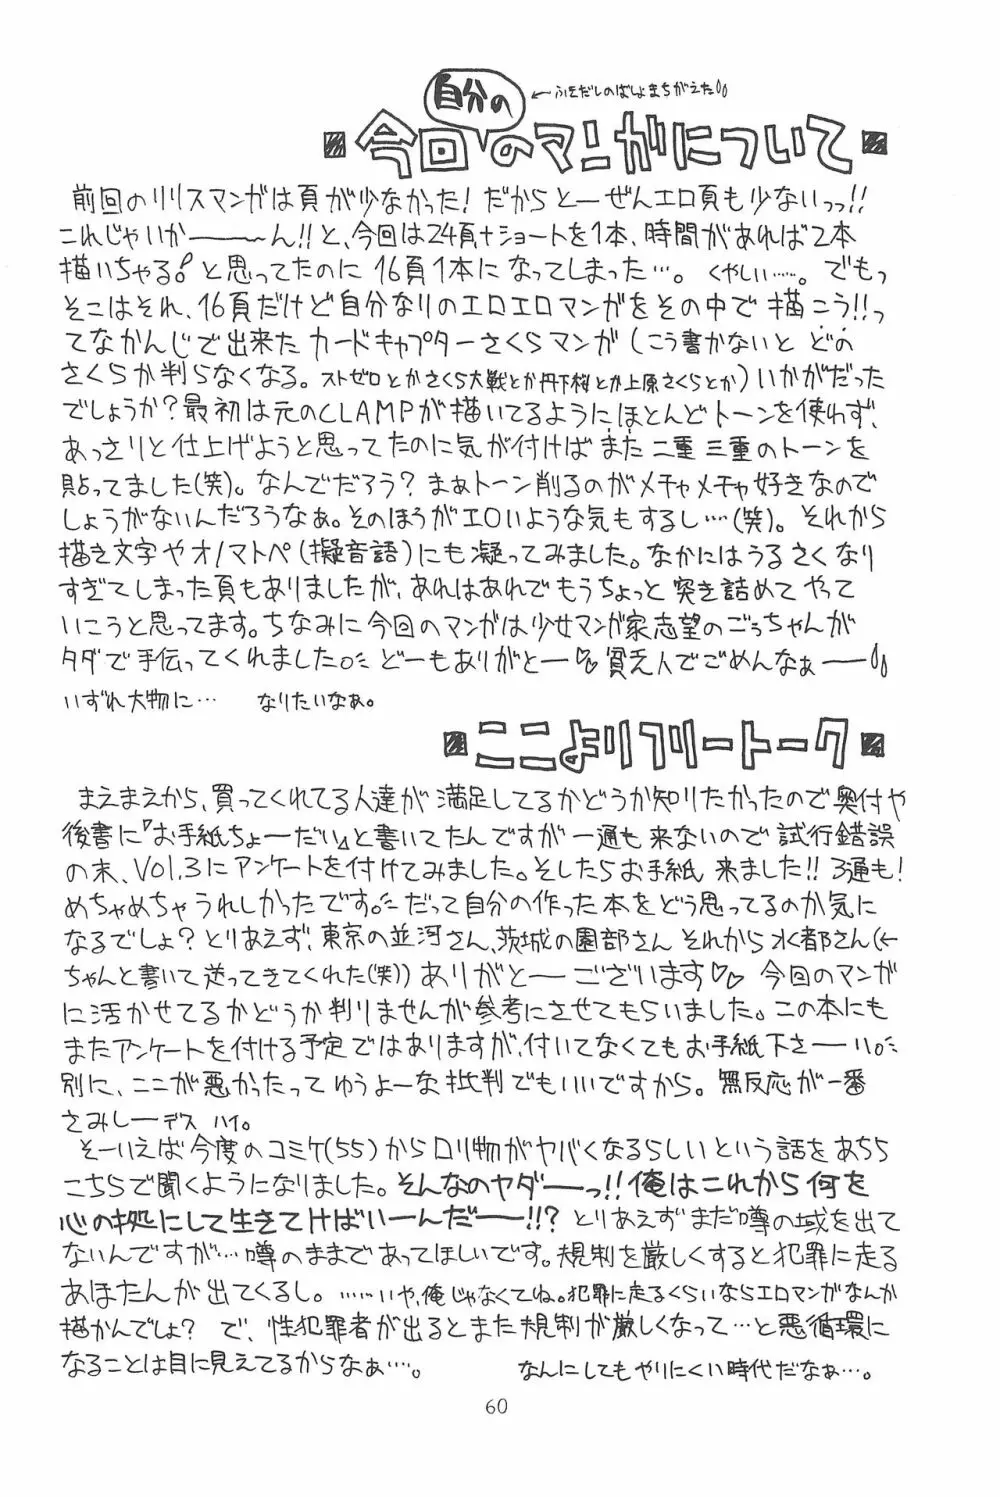 自分の
←ふきだしのばしょまちがえた
今回のマンガについて
前回のリリスマンガは頁が少なかった!だからとーぜんエロ頁も少ないっっ!!
これじゃいか――〜ん!!と、今回は24頁+ショートを1本、時間があれば2本
描いちゃる!と思ってたのに16頁1本になってしまった…。くやしい……。でもっ
そこはそれ、16頁だけど自分なりのエロエロマンガをその中で描こう!!っ
てなかんじで出来たカードキャプターさくらマンガ(こう書かないとどの
さくらか判らなくなる。ストゼロとかさくら大戦とか丹下桜とか上原さくらとか)いかがだった
でしょうか?最初は元のCLAMPが描いてるように、ほとんどトーンを使わず、
あっさりと仕上げようと思ってたのに気が付けばまた二重三重のトーンを
貼ってました(笑)。なんでだろう?まぁトーン削るのがメチャメチャ好きなので
しょうがないんだろうなぁ。そのほうがエロいような気もするし…(笑)。それから
描き文字やオノマトペ(擬音語)にも凝ってみました。なかにはうるさくなり
すぎてしまった頁もありましたが、あれはあれでもうちょっと突き詰めてやって
いこうと思ってます。ちなみに今回のマンガは少女マンガ家志望のごぅちゃんが
タダで手伝ってくれました。どーもありがとー♡貧乏人でごめんなぁ――
いずれ大物に… なりたいなぁ。
ここよりフリートーク
まえまえから、買ってくれてる人達が満足してるかどうか知りたかったので奥付や
後書に『お手紙ちょーだい』と書いてたんですが一通も来ないので試行錯誤
の末、Vol.3にアンケートを付けてみました。そしたらお手紙来ました!!3通も!
めちゃめちゃうれしかったです。だって自分の作った本をどう思ってるのか気に
なるでしょ?とりあえず、東京の並河さん、茨城の園部さんそれから水都さん(←
ちゃんと書いて送ってきてくれた(笑))ありがとーございます♡♡今回のマンガ
に活かせてるかどうか判りませんが参考にさせてもらいました。この本にも
またアンケートを付ける予定ではありますが、付いてなくてもお手紙下さーい。
別に、ここが悪かったってゆうよーな批判でもいいですから。無反応が一番
さみしーデス ハイ。
そーいえば今度のコミケ(55)からロリ物がヤバくなるらしいという話をあちら
こちらで聞くようになりました。そんなのヤダーっ!!俺はこれから何を
心の拠にして生きてけばいーんだー!!?とりあえずまだ噂の域を出て
ないんですが…噂のままであってほしいです。規制を厳しくすると犯罪に走る
あほたんが出てくるし。……いや、俺じゃなくてね。犯罪に走るくらいならエロマンガなんか
描かんでしょ?で、性犯罪者が出るとまた規制が厳しくなって…と悪循環に
なることは目に見えてるからなぁ…。 なんにしてもやりにくい時代だなぁ…。
60